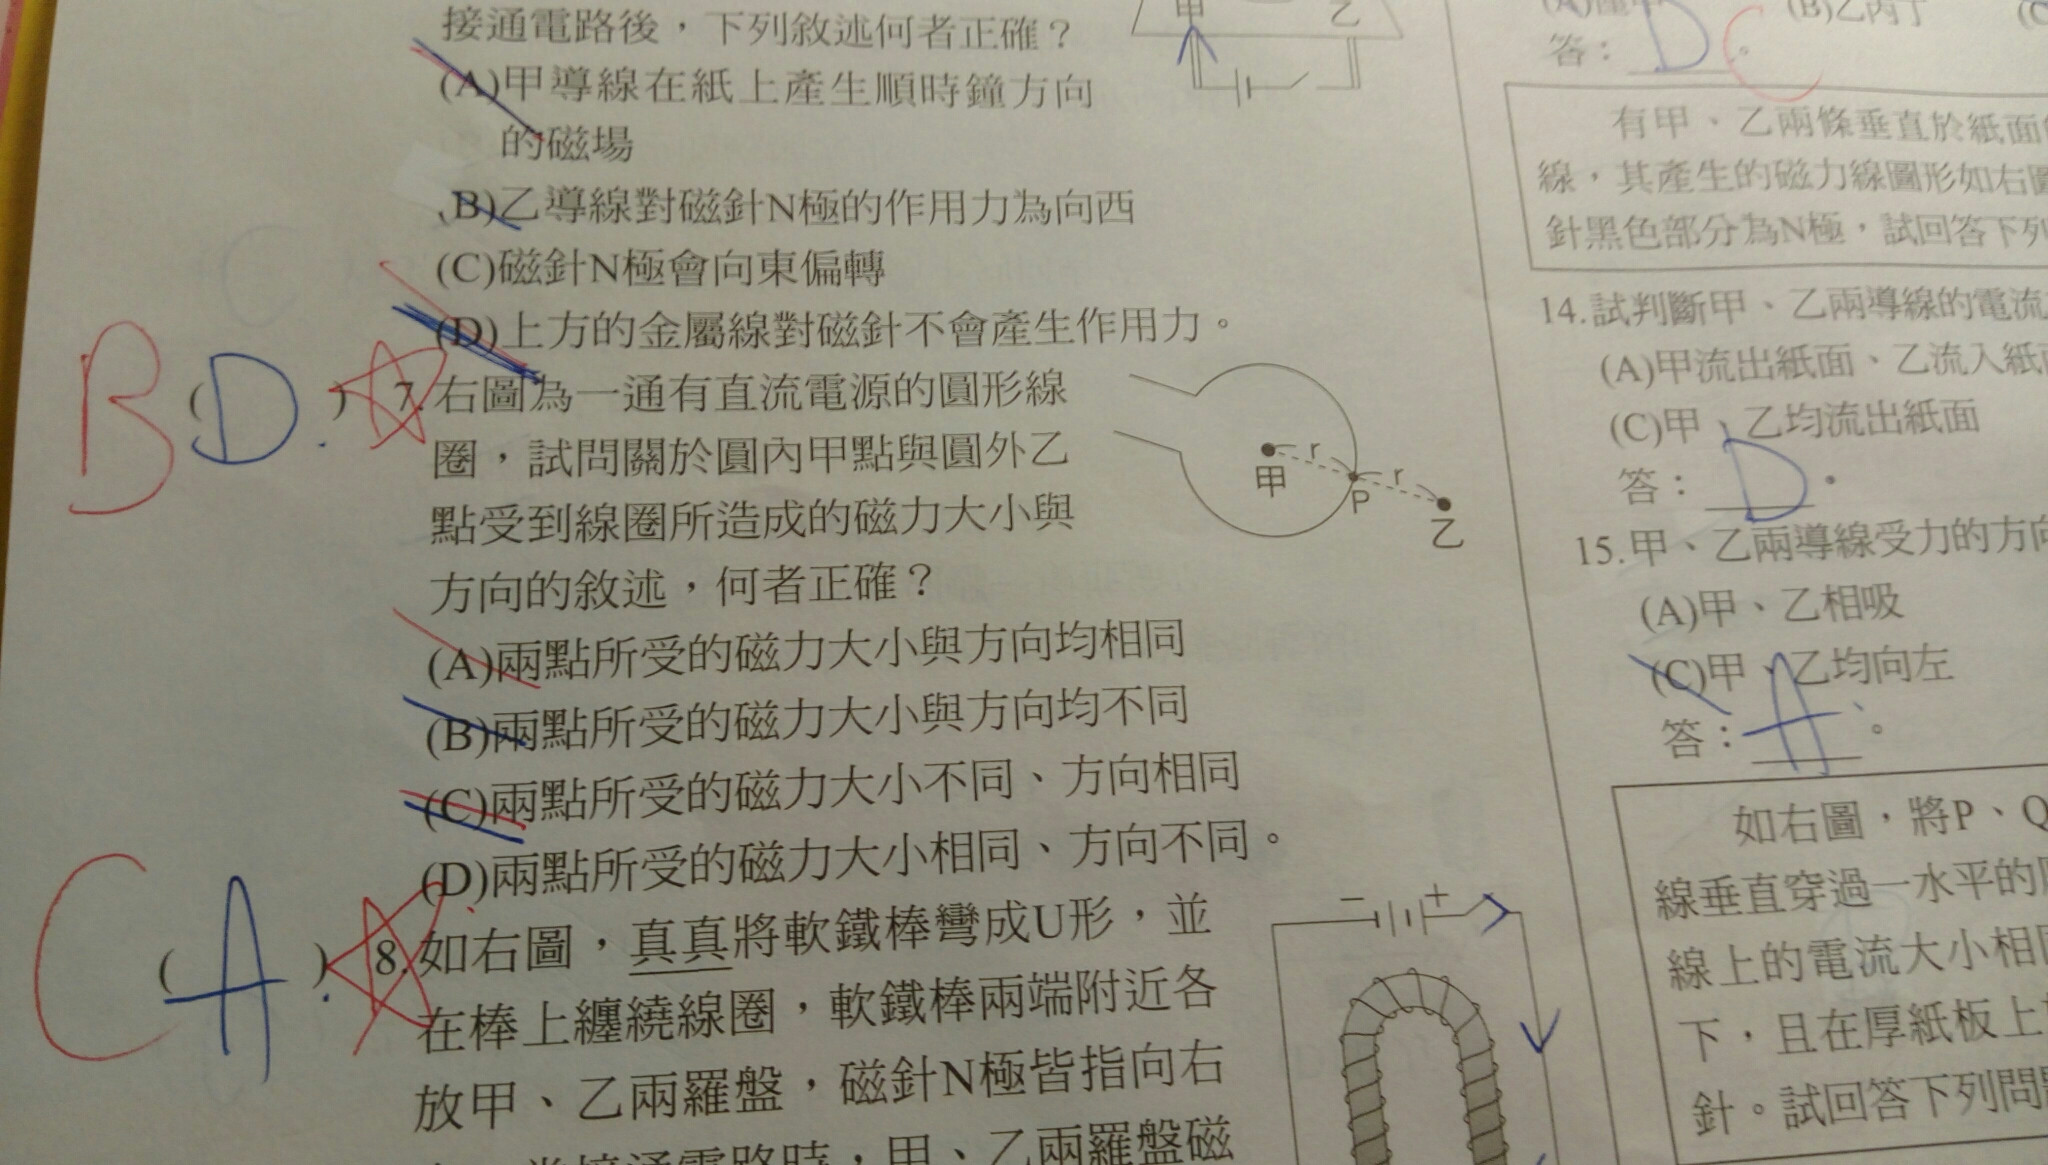 接通電路後，下列敘述何者正確？
(A)甲導線在紙上產生順時鐘方向
的磁場
(B)乙導線對磁針N極的作用力為向西
(C)磁針N極會向東偏轉
(D)上方的金屬線對磁針不會產生作用力。
甲
乙
B
(D.)
7.右圖為一通有直流電源的圓形線
圈，試問關於圓內甲點與圓外乙
點受到線圈所造成的磁力大小與
方向的敘述，何者正確？
(A)兩點所受的磁力大小與方向均相同
(B)兩點所受的磁力大小與方向均不同
(C)兩點所受的磁力大小不同、方向相同
(D)兩點所受的磁力大小相同、方向不同。
甲
r
P
r
乙
C
(A.)
8.如右圖，真真將軟鐵棒彎成U形，並
在棒上纏繞線圈，軟鐵棒兩端附近各
放甲、乙兩羅盤，磁針N極皆指向右
接通電路時，甲、乙兩羅盤磁
－
＋
(B)乙丙丁
答：D。
C
有甲、乙兩條垂直於紙面
線，其產生的磁力線圖形如右圖
針黑色部分為N極，試回答下列
14.試判斷甲、乙兩導線的電流
(A)甲流出紙面、乙流入紙
(C)甲、乙均流出紙面
答：D。
15.甲、乙兩導線受力的方向
(A)甲、乙相吸
(C)甲、乙均向左
答：A。
如右圖，將P、Q
線垂直穿過一水平的
線上的電流大小相
下，且在厚紙板上
針。試回答下列問